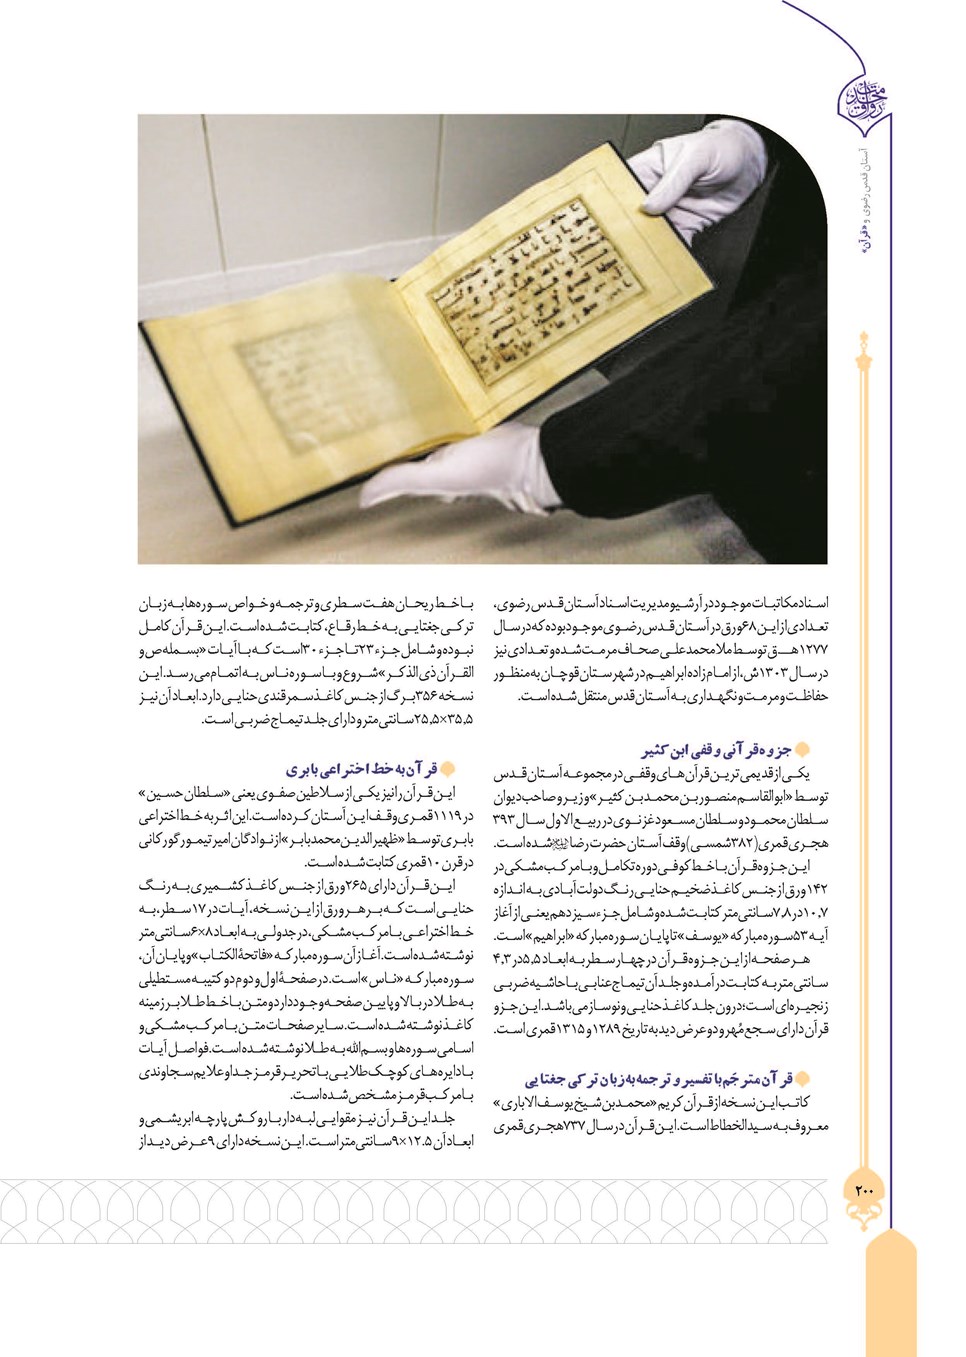 آستان قدس رضوی و «قرآن»
اسناد مکاتبات موجود در آرشیو مدیریت اسناد آستان قدس رضوی،
تعدادی از این ۶۸ ورق در آستان قدس رضوی موجود بوده که در سال
۱۲۷۷ هـ ق توسط ملا محمدعلی صحاف مرمت شده و تعدادی نیز
در سال ۱۳۰۳ش، از امام‌زاده ابراهیم در شهرستان قوچان به منظور
حفاظت و مرمت و نگهداری به آستان قدس منتقل شده است.
جزوه قرآنی وقفی ابن کثیر
یکی از قدیمی‌ترین قرآن‌های وقفی در مجموعه آستان قدس
توسط «ابوالقاسم منصور بن محمد بن کثیر» وزیر و صاحب دیوان
سلطان محمود و سلطان مسعود غزنوی در ربیع‌الاول سال ۳۹۳
هجری قمری (۳۸۲ شمسی) وقف آستان حضرت رضا شده است.
این جزوه قرآن با خط کوفی دوره تکامل و با مرکب مشکی در
۱۴۲ ورق از جنس کاغذ ضخیم حنایی رنگ دولت‌آبادی به اندازه
۱۰٫۷ در ۷٫۸ سانتی‌متر کتابت شده و شامل جزء سیزدهم یعنی از آغاز
آیه ۵۳ سوره مبارکه «یوسف» تا پایان سوره مبارکه «ابراهیم» است.
هر صفحه از این جزوه قرآن در چهار سطر به ابعاد ۵٫۵ در ۴٫۳
سانتی‌متر به کتابت درآمده و جلد آن تیماج عنابی با حاشیه ضربی
زنجیره‌ای است؛ درون جلد کاغذ حنایی و نوسازمی باشد. این جزو
قرآن دارای سجع مُهر و دو عرض دید به تاریخ ۱۲۸۹ و ۱۳۱۵ قمری است.
قرآن مترجَم با تفسیر و ترجمه به زبان ترکی جغتایی
کاتب این نسخه از قرآن کریم «محمد بن شیخ یوسف الاباری»
معروف به سیدالخطاط است. این قرآن در سال ۷۳۷ هجری قمری
با خط ریحان هفت سطری و ترجمه و خواص سوره‌ها به زبان
ترکی جغتایی به خط رقاع، کتابت شده است. این قرآن کامل
نبوده و شامل جزء ۲۳ تا جزء ۳۰ است که با آیات «بسمله ص و
القرآن ذی الذکر» شروع و با سوره ناس به اتمام می‌رسد. این
نسخه ۳۵۶ برگ از جنس کاغذ سمرقندی حنایی دارد. ابعاد آن نیز
۳۵٫۵×۲۵٫۵ سانتی‌متر و دارای جلد تیماج ضربی است.
قرآن به خط اختراعی بابری
این قرآن را نیز یکی از سلاطین صفوی یعنی «سلطان حسین»
در ۱۱۱۹ قمری وقف این آستان کرده است. این اثر به خط اختراعی
بابری توسط «ظهیرالدین محمد بابر» از نوادگان امیر تیمور گورکانی
در قرن ۱۰ قمری کتابت شده است.
این قرآن دارای ۲۶۵ ورق از جنس کاغذ کشمیری به رنگ
حنایی است که بر هر ورق از این نسخه، آیات در ۱۷ سطر، به
خط اختراعی با مرکب مشکی، در جدولی به ابعاد ۸×۶ سانتی‌متر
نوشته شده است. آغاز آن سوره مبارکه «فاتحةالکتاب» و پایان آن،
سوره مبارکه «ناس» است. در صفحهٔ اول و دوم دو کتیبه مستطیلی
به طلا در بالا و پایین صفحه وجود دارد و متن با خط طلا بر زمینه
کاغذ نوشته شده است. سایر صفحات متن با مرکب مشکی و
اسامی سوره‌ها و بسم‌الله به طلا نوشته شده است. فواصل آیات
با دایره‌های کوچک طلایی با تحریر قرمز جدا و علایم سجاوندی
با مرکب قرمز مشخص شده است.
جلد این قرآن نیز مقوایی لبه‌دار با روکش پارچه ابریشمی و
ابعاد آن ۱۲٫۵×۹ سانتی‌متر است. این نسخه دارای ۹ عرض دید از
۲۰۰